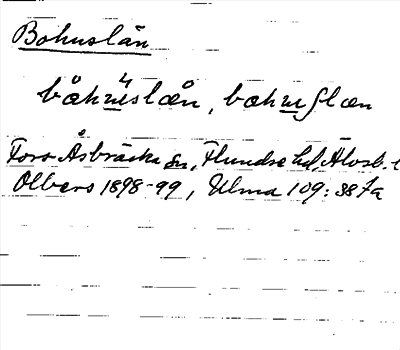 Bohuslän
båhuslæn, bohuslæn
Fors-Åsbräcka sn, Flundre hd, Älvsb. l
Olbers 1898-99, Ulma 109:387a